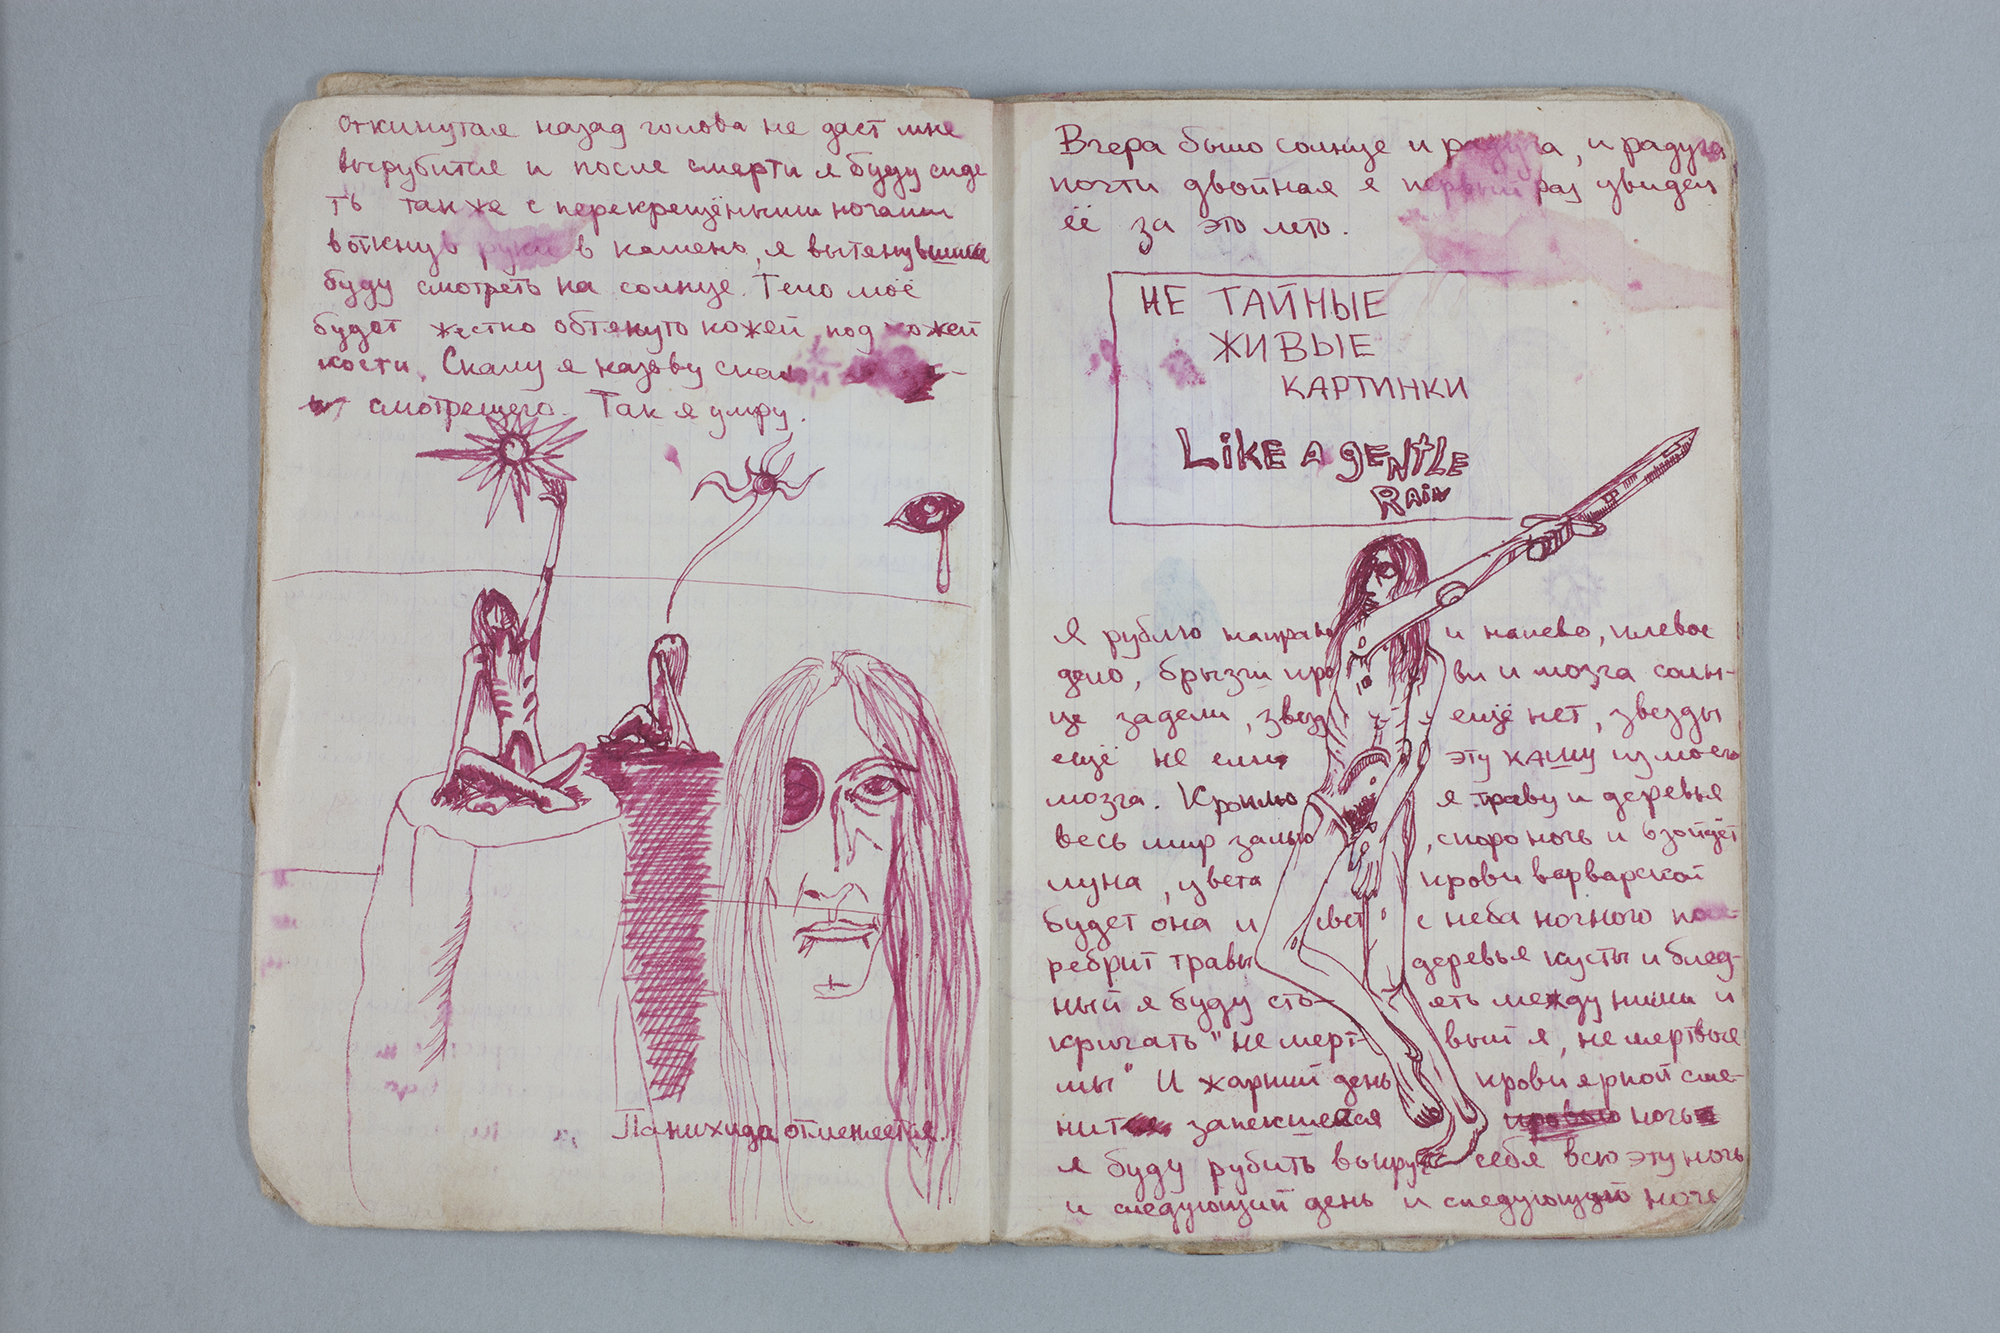 откинутая назад голова не даст мне
вырубится и после смерти я буду сиде
ть также с перекрещёными ногами
воткнув руки в камень, я вытянувшийся
буду смотреть на солнце. Тело моё
будет жестко обтянуто кожей, под кожей
кости. Скалу я назову скалой
смотрещего. Так я умру.
Панихида отменяется.
Вчера было солнце и радуга, и радуга
почти двойная я первый раз увидел
её за это лето.
НЕ ТАЙНЫЕ
ЖИВЫЕ
КАРТИНКИ
LiKE A gENtLE
RAiN
Я рублю направо и налево, плевое
дело, брызги крови и мозга солн-
це задели, звезд ещё нет, звезды
ещё не ели эту кашу из моего
мозга. Кроплю я траву и деревья
весь мир залью, скоро ночь и взойдёт
луна, цвета крови варварской
будет она и свет с неба ночного по-
ребрит травы деревья кусты и блед-
ный я буду сто- ять между ними и
кричать "не мерт- вый я, не мертвые
мы" И жаркий день крови яркой сме-
нит запекшейся ночь
я буду рубить вокруг себя всю эту ночь
и следующий день и следующую ночь